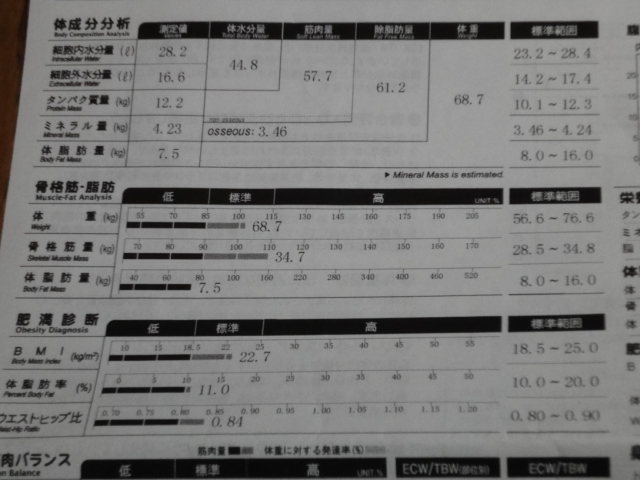 体成分分析 測定値 体水分量 筋肉量 除脂肪量 体重 標準範囲
Body Composition Analysis Values Total Body Water Soft Lean Mass Fat Free Mass Weight
細胞内水分量 (ℓ) 28.2 44.8 57.7 61.2 68.7 23.2 ~ 28.4
Intracellular Water
細胞外水分量 (ℓ) 16.6 14.2 ~ 17.4
Extracellular Water
タンパク質量 (kg) 12.2 10.1 ~ 12.3
Protein Mass
ミネラル量 (kg) 4.23 osseous: 3.46 3.46 ~ 4.24
Mineral Mass non osseous
体脂肪量 (kg) 7.5 8.0 ~ 16.0
Body Fat Mass
▶ Mineral Mass is estimated.
骨格筋・脂肪 低 標準 高 UNIT % 標準範囲
Muscle-Fat Analysis
体重 (kg) 55 70 85 100 115 130 145 160 175 190 205 56.6 ~ 76.6
Weight 68.7
骨格筋量 (kg) 70 80 90 100 110 120 130 140 150 160 170 28.5 ~ 34.8
Skeletal Muscle Mass 34.7
体脂肪量 (kg) 40 60 80 100 160 220 280 340 400 460 520 8.0 ~ 16.0
Body Fat Mass 7.5
肥満診断 低 標準 高 標準範囲
Obesity Diagnosis
BMI (kg/m²) 10 15 18.5 22 25 30 35 40 45 50 55 18.5 ~ 25.0
Body Mass Index 22.7
体脂肪率 (%) 0 5 10 15 20 25 30 35 40 45 50 10.0 ~ 20.0
Percent Body Fat 11.0
ウエストヒップ比 0.70 0.75 0.80 0.85 0.90 0.95 1.00 1.05 1.10 1.15 1.20 0.80 ~ 0.90
Waist-Hip Ratio 0.84
筋肉量 体重に対する発達率(%)
肉バランス 低 標準 高 UNIT % ECW/TBW(部位別) ECW/TBW
n Balance